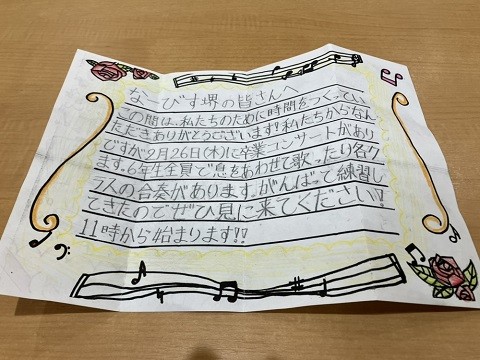 なーびす堺の皆さんへ
この間は、私たちのために時間をつくってい
ただきありがとうございます!私たちからなん
ですが2月26日(木)に卒業コンサートがあり
ます。6年生全員で息をあわせて歌ったり各ク
ラスの合奏があります。がんばって練習し
てきたのでぜひ見に来てください!
11時から始まります!!